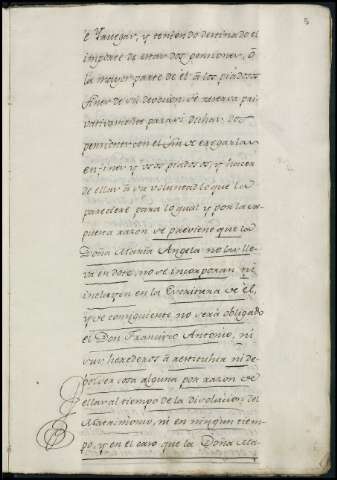 3
é Navegar, y teniendo destinado el
importe de estas dos pensiones, ó
la mayor parte de él á los piadosos
fines de su devocion, se reserva pri-
vativamente para si dichas dos
pensiones con el fin de exgastarlas
en fines y usos piadosos, y hacer
de ellas á su voluntad lo que la
pareciere para lo qual y por la ex-
puesta razon se previene que la
Doña Maria Angela no las lle-
va en dote, no se incorporan ni
incluyen en la Escritura de él,
y de consiguiente no será obligado
el Don Francisco Antonio, ni
sus herederos á restituhir ni de-
bolver cosa alguna por razon de
ellas al tiempo de la disolucion del
Matrimonio, ni en ningun tiem-
po, y en el caso que la Doña Ma-